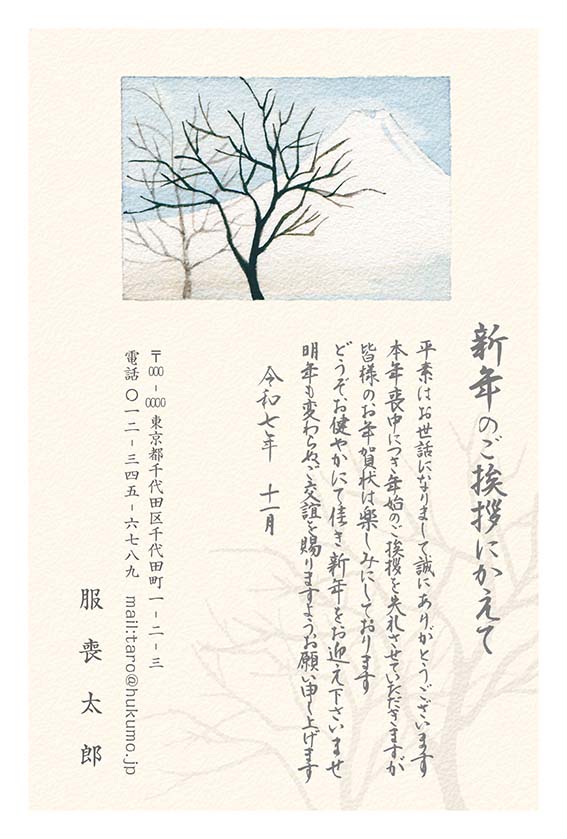 新年のご挨拶にかえて
平素はお世話になりまして誠にありがとうございます
本年喪中につき年始のご挨拶を失礼させていただきますが
皆様のお年賀状は楽しみにしております
どうぞお健やかにて佳き新年をお迎え下さいませ
明年も変わらぬご交誼を賜りますようお願い申し上げます
令和七年 十一月
〒000-0000 東京都千代田区千代田町一-二-三
電話 〇一二-三四五-六七八九 mail:taro@hukumo.jp
服喪太郎